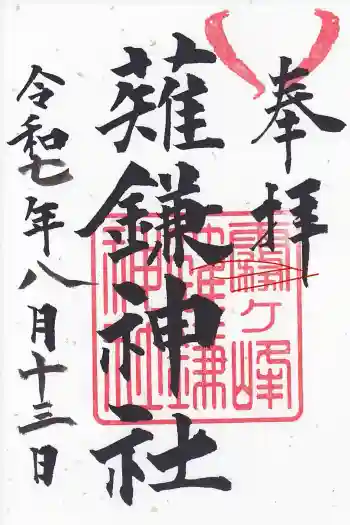 奉拝
薙鎌神社
令和七年八月十三日
霧ヶ峰
薙鎌
神社